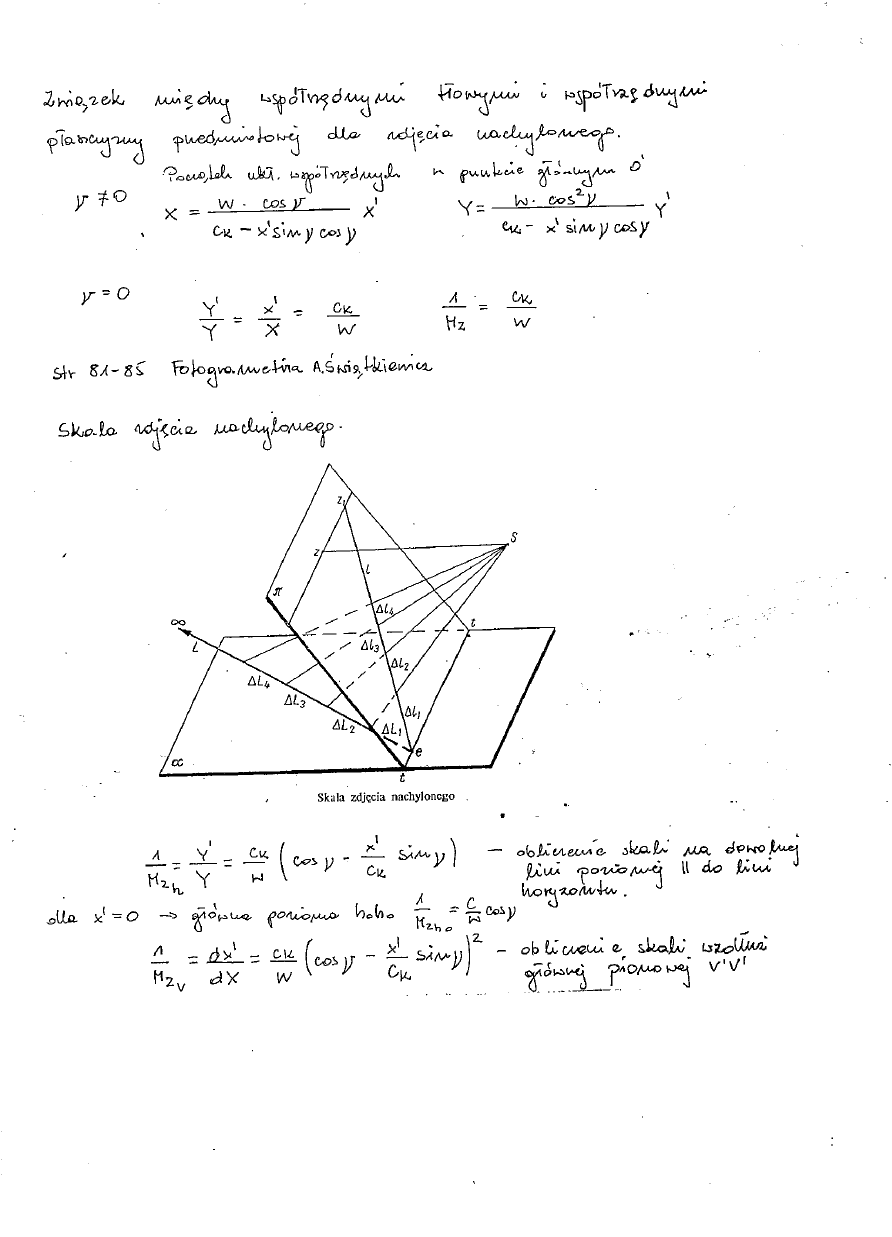 Związek między współrzędnymi tłowymi i współrzędnymi
płaszczyzny przedmiotowej dla zdjęcia nachylonego.
Początek ukł. współrzędnych w punkcie głównym O'
ν ≠ 0 X = (W · cos ν / (ck − x' sin ν cos ν)) X' Y = (W · cos² ν / (ck − x' sin ν cos ν)) Y'
ν = 0 Y'/Y = x'/X = ck/W 1/Mz = ck/W
str 81-85 Fotogrametria A. Świątkiewicz
Skala zdjęcia nachylonego.
z₁
S
z
l
π
Δl₄
∞
t
L
Δl₃
Δl₂
ΔL₄
ΔL₃
Δl₁
ΔL₂
ΔL₁
e
α
t
Skala zdjęcia nachylonego
1/Mzh = Y'/Y = ck/W (cos ν − x'/ck sin ν) − obliczenie skali na dowolnej
linii poziomej || do linii
horyzontu.
dla x' = 0 → główna pozioma hoho 1/Mzho = C/W cos ν
1/Mzv = dx'/dX = ck/W (cos ν − x'/Ck sin ν)² − obliczenie skali wzdłuż
głównej pionowej V'V'